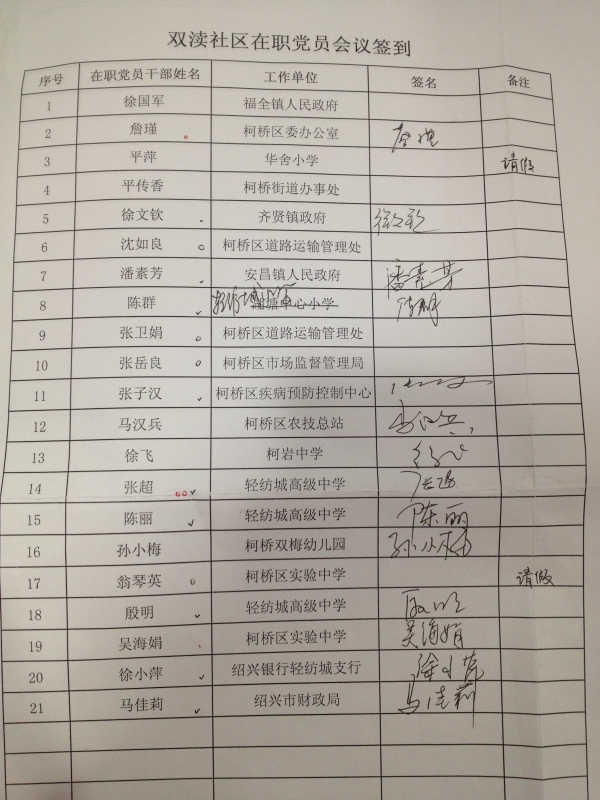 双渎社区在职党员会议签到
序号 在职党员干部姓名 工作单位 签名 备注
1 徐国军 福全镇人民政府
2 詹瑾 柯桥区委办公室
3 平萍 华舍小学 请假
4 平传香 柯桥街道办事处
5 徐文钦 齐贤镇政府
6 沈如良 柯桥区道路运输管理处
7 潘素芳 安昌镇人民政府 潘素芳
8 陈群 中心小学 陈群
9 张卫娟 柯桥区道路运输管理处
10 张岳良 柯桥区市场监督管理局
11 张子汉 柯桥区疾病预防控制中心
12 马汉兵 柯桥区农技总站
13 徐飞 柯岩中学
14 张超 轻纺城高级中学 张超
15 陈丽 轻纺城高级中学 陈丽
16 孙小梅 柯桥双梅幼儿园 孙小梅
17 翁琴英 柯桥区实验中学 请假
18 殷明 轻纺城高级中学 殷明
19 吴海娟 柯桥区实验中学 吴海娟
20 徐小萍 绍兴银行轻纺城支行 徐小萍
21 马佳莉 绍兴市财政局 马佳莉